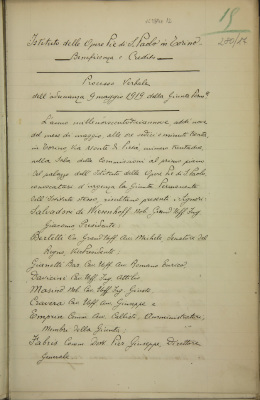 19
Istituto delle Opere Pie di S. Paolo in Torino
Beneficenza e Credito
Processo Verbale
dell'adunanza 9 maggio 1919 della Giunta
L'anno millenovecentodiciannove addì nove
del mese di maggio alle ore undici e minuti trenta
in Torino, via Monte di Pietà, numero trentadue
nella Sala delle Commissioni al primo piano
del palazzo dell'Istituto delle Opere Pie di S. Paolo
convocatasi d'urgenza la Giunta Permanente
dell'Istituto stesso, risultano presenti i Signori:
Salvadori di Wiesenhoff Nob. Grand'Uff. Ing.
Giacomo Presidente;
Bertetti Grand'Uff. Avv. Michele, Senatore del
Regno, Vicepresidente;
Giannetti Cav. Uff. Avv. Romano Enrico
Davicini Cav. Uff. Ing. Attilio
Cav. Uff. Ing.
Cravero Cav. Uff. Avv. Giuseppe e
Emprin Comm. Avv. Callisto, Amministratore,
Membri della Giunta;
Fabris Comm. Dott. Pier Giuseppe Direttore
Generale